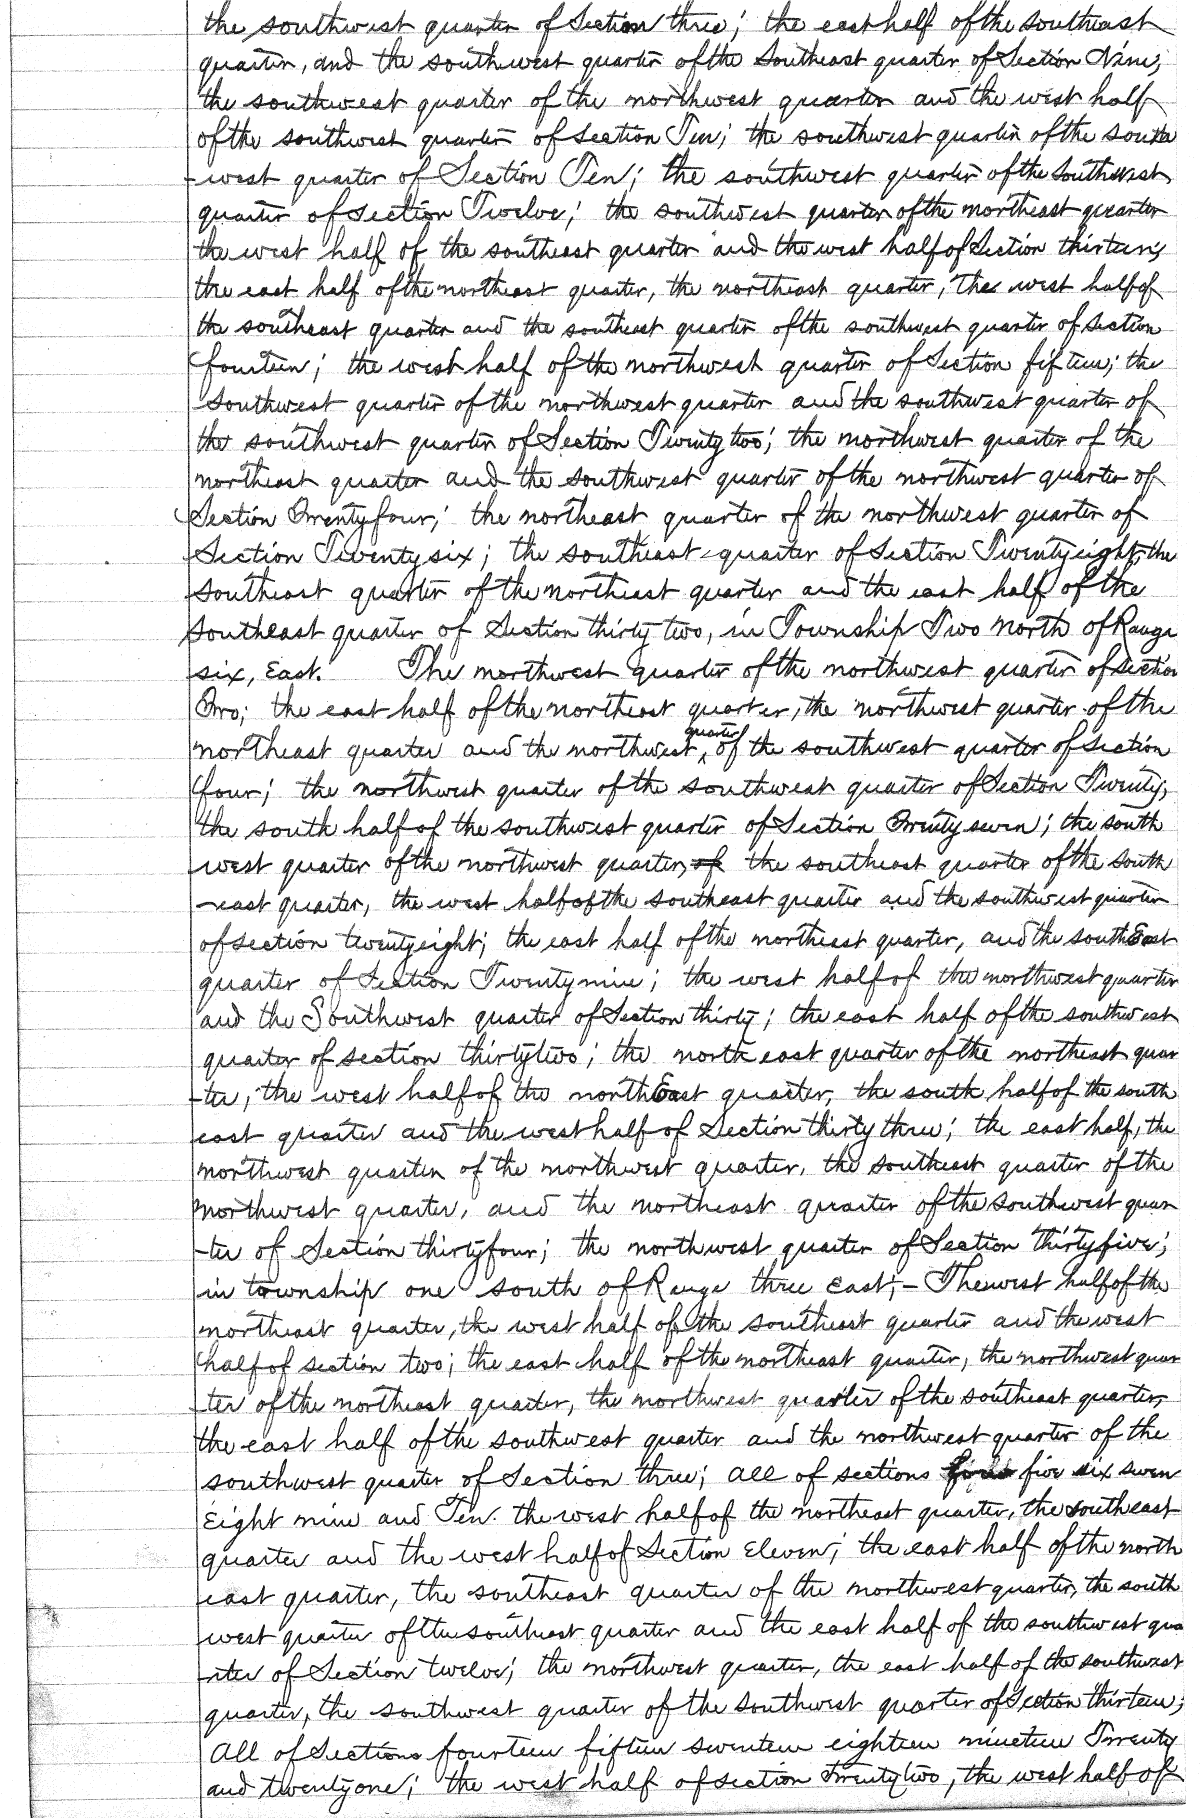 the southwest quarter of Section three; the east half of the southeast
quarter, and the southwest quarter of the Southeast quarter of Section Nine;
the southwest quarter of the northwest quarter and the west half
of the southwest quarter of Section Ten; the southwest quarter of the south
-west quarter of Section Ten; the southwest quarter of the Southwest
quarter of Section Twelve; the southwest quarter of the northeast quarter
the west half of the southeast quarter and the west half of Section thirteen;
the east half of the northeast quarter, the northeast quarter, the west half of
the southeast quarter and the southeast quarter of the southwest quarter of Section
fourteen; the west half of the northwest quarter of Section fifteen; the
Southwest quarter of the northwest quarter and the southwest quarter of
the southwest quarter of Section Twenty two; the northwest quarter of the
northeast quarter and the southwest quarter of the northwest quarter of
Section Twenty four; the northeast quarter of the northwest quarter of
Section Twenty six; the southeast quarter of Section Twenty eight, the
Southeast quarter of the northeast quarter and the east half of the
Southeast quarter of Section thirty two, in Township Two North of Range
six, East. The northwest quarter of the northwest quarter of Section
Two; the east half of the northeast quarter, the northwest quarter of the
northeast quarter and the northwest quarter of the southwest quarter of Section
four; the northwest quarter of the southwest quarter of Section Twenty,
the south half of the southwest quarter of Section Twenty seven; the south
west quarter of the northwest quarter, of the southeast quarter of the south
-east quarter, the west half of the southeast quarter and the southwest quarter
of section twenty eight; the east half of the northeast quarter, and the southEast
quarter of Section Twenty nine; the west half of the northwest quarter
and the Southwest quarter of Section thirty; the east half of the southwest
quarter of section thirty two; the north east quarter of the northeast quar
-ter, the west half of the northEast quarter, the south half of the south
east quarter and the west half of Section thirty three; the east half, the
northwest quarter of the northwest quarter, the southeast quarter of the
northwest quarter, and the northeast quarter of the southwest quar
-ter of Section thirty four; the northwest quarter of Section thirty five;
in township one south of Range three East;- The west half of the
northeast quarter, the west half of the southeast quarter and the west
half of section two; the east half of the northeast quarter, the northwest quar
ter of the northeast quarter, the northwest quarter of the southeast quarter,
the east half of the southwest quarter and the northwest quarter of the
southwest quarter of Section three; all of sections five six seven
Eight nine and Ten. the west half of the northeast quarter, the southeast
quarter and the west half of Section Eleven; the east half of the north
east quarter, the southeast quarter of the northwest quarter, the south
west quarter of the southeast quarter and the east half of the southwest qua
rter of Section twelve; the northwest quarter, the east half of the southwest
quarter, the southwest quarter of the southwest quarter of Section thirteen;
All of Sections fourteen fifteen seventeen eighteen nineteen Twenty
and twenty one; the west half of section Twenty two, the west half of